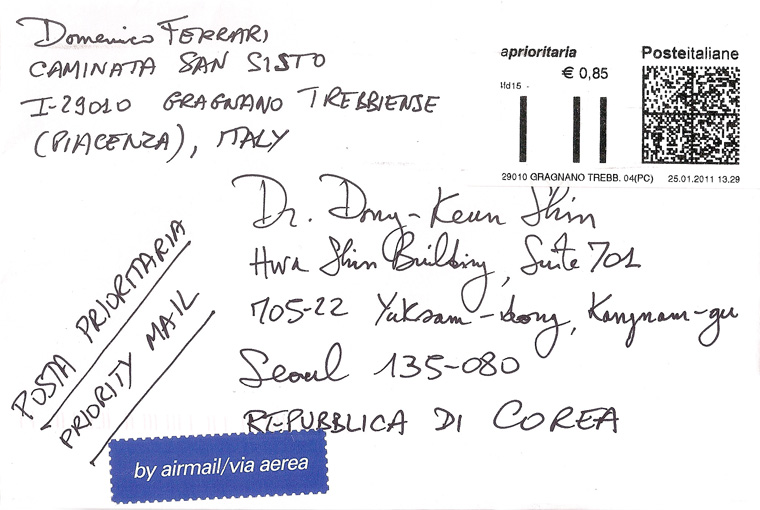 Domenico FERRARI
CAMINATA SAN SISTO
I-29010 GRAGNANO TREBBIENSE
(PIACENZA), ITALY
aprioritaria
Posteitaliane
€ 0,85
tfd15 -
29010 GRAGNANO TREBB. 04(PC) 25.01.2011 13.29
Dr. Dong-Keun Shin
Hwa Shin Building, Suite 701
705-22 Yuksam-dong, Kangnam-gu
Seoul 135-080
REPUBBLICA DI COREA
POSTA PRIORITARIA
PRIORITY MAIL
by airmail/via aerea